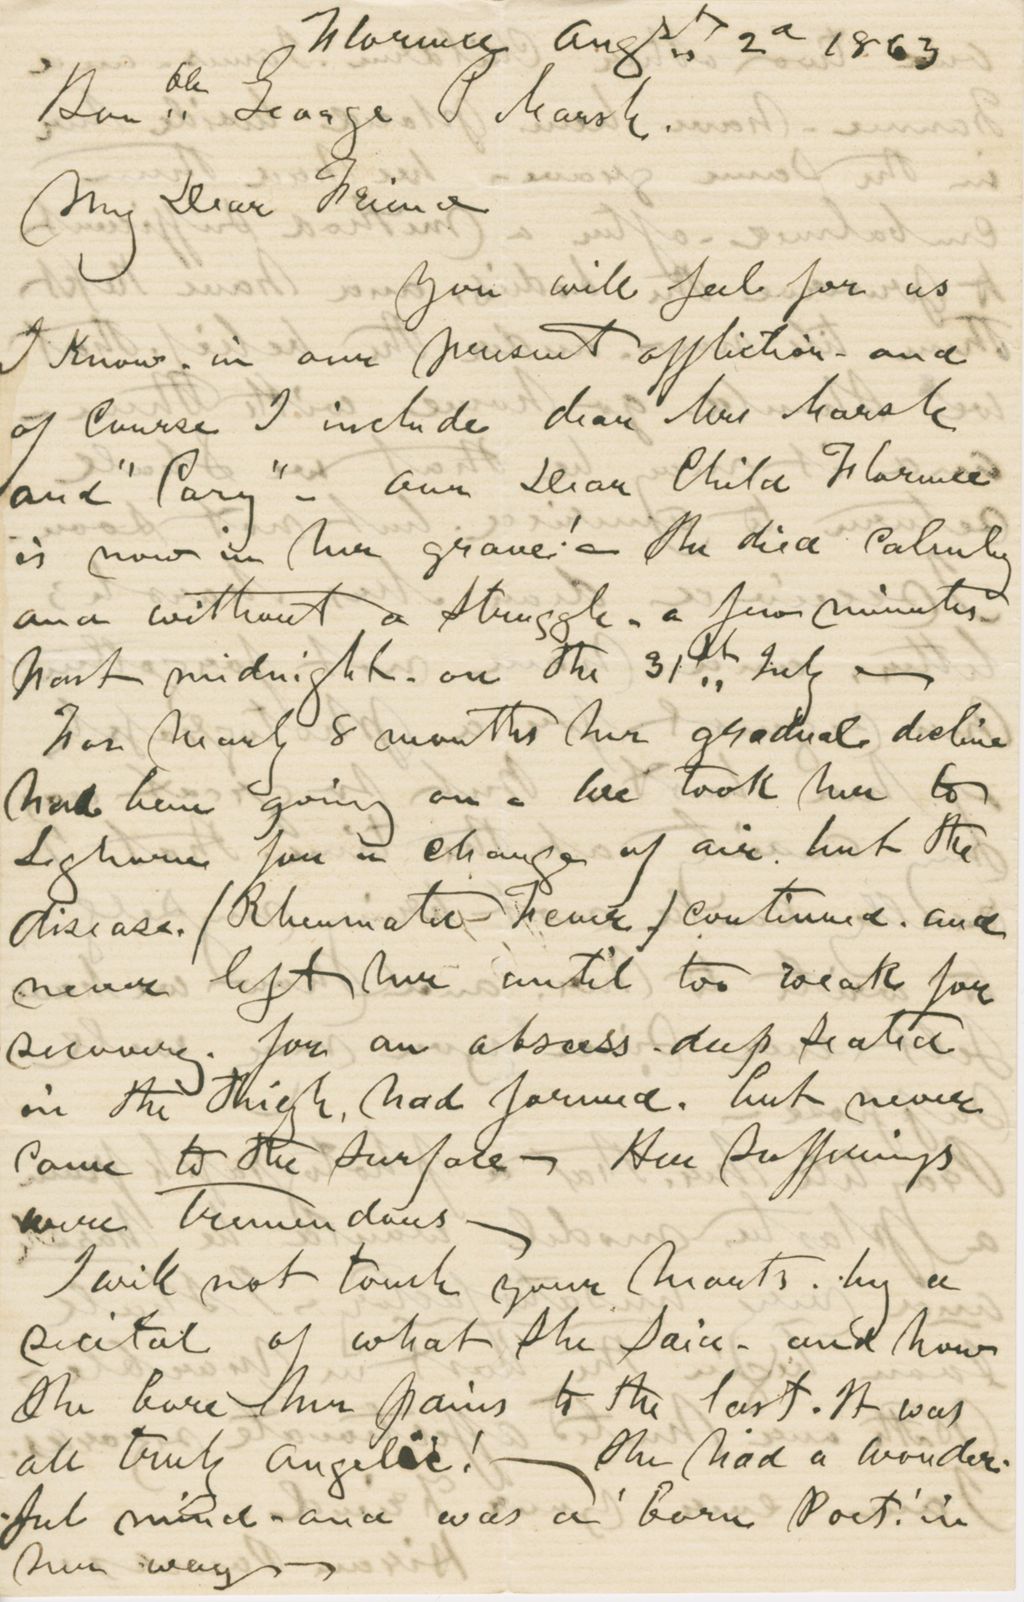 Florence Augst 2d 1863
Honble George P Marsh.
My Dear Friend
You will feel for us
I Know. in our present affliction - and
of Course I include dear Mrs Marsh
and "Cary" - our Dear Child Florence
is now in her grave! - She died Calmly
and without a Struggle - a few minutes
past midnight - on the 31st July —
For nearly 8 months her gradual decline
had been going on - We took her to
Leghorn for a change of air. but the
disease. (Rheumatic Fever) continued. and
never left her until too weak for
recovery. for an abscess - deep seated
in the thigh, had formed. but never
came to the surface — Her Sufferings
were tremendous —
I will not touch your hearts. by a
recital of what She Said - and how
She bore her pains to the last. It was
all truly angelic! — She had a wonder-
-ful mind - and was a 'born Poet' in
her way —